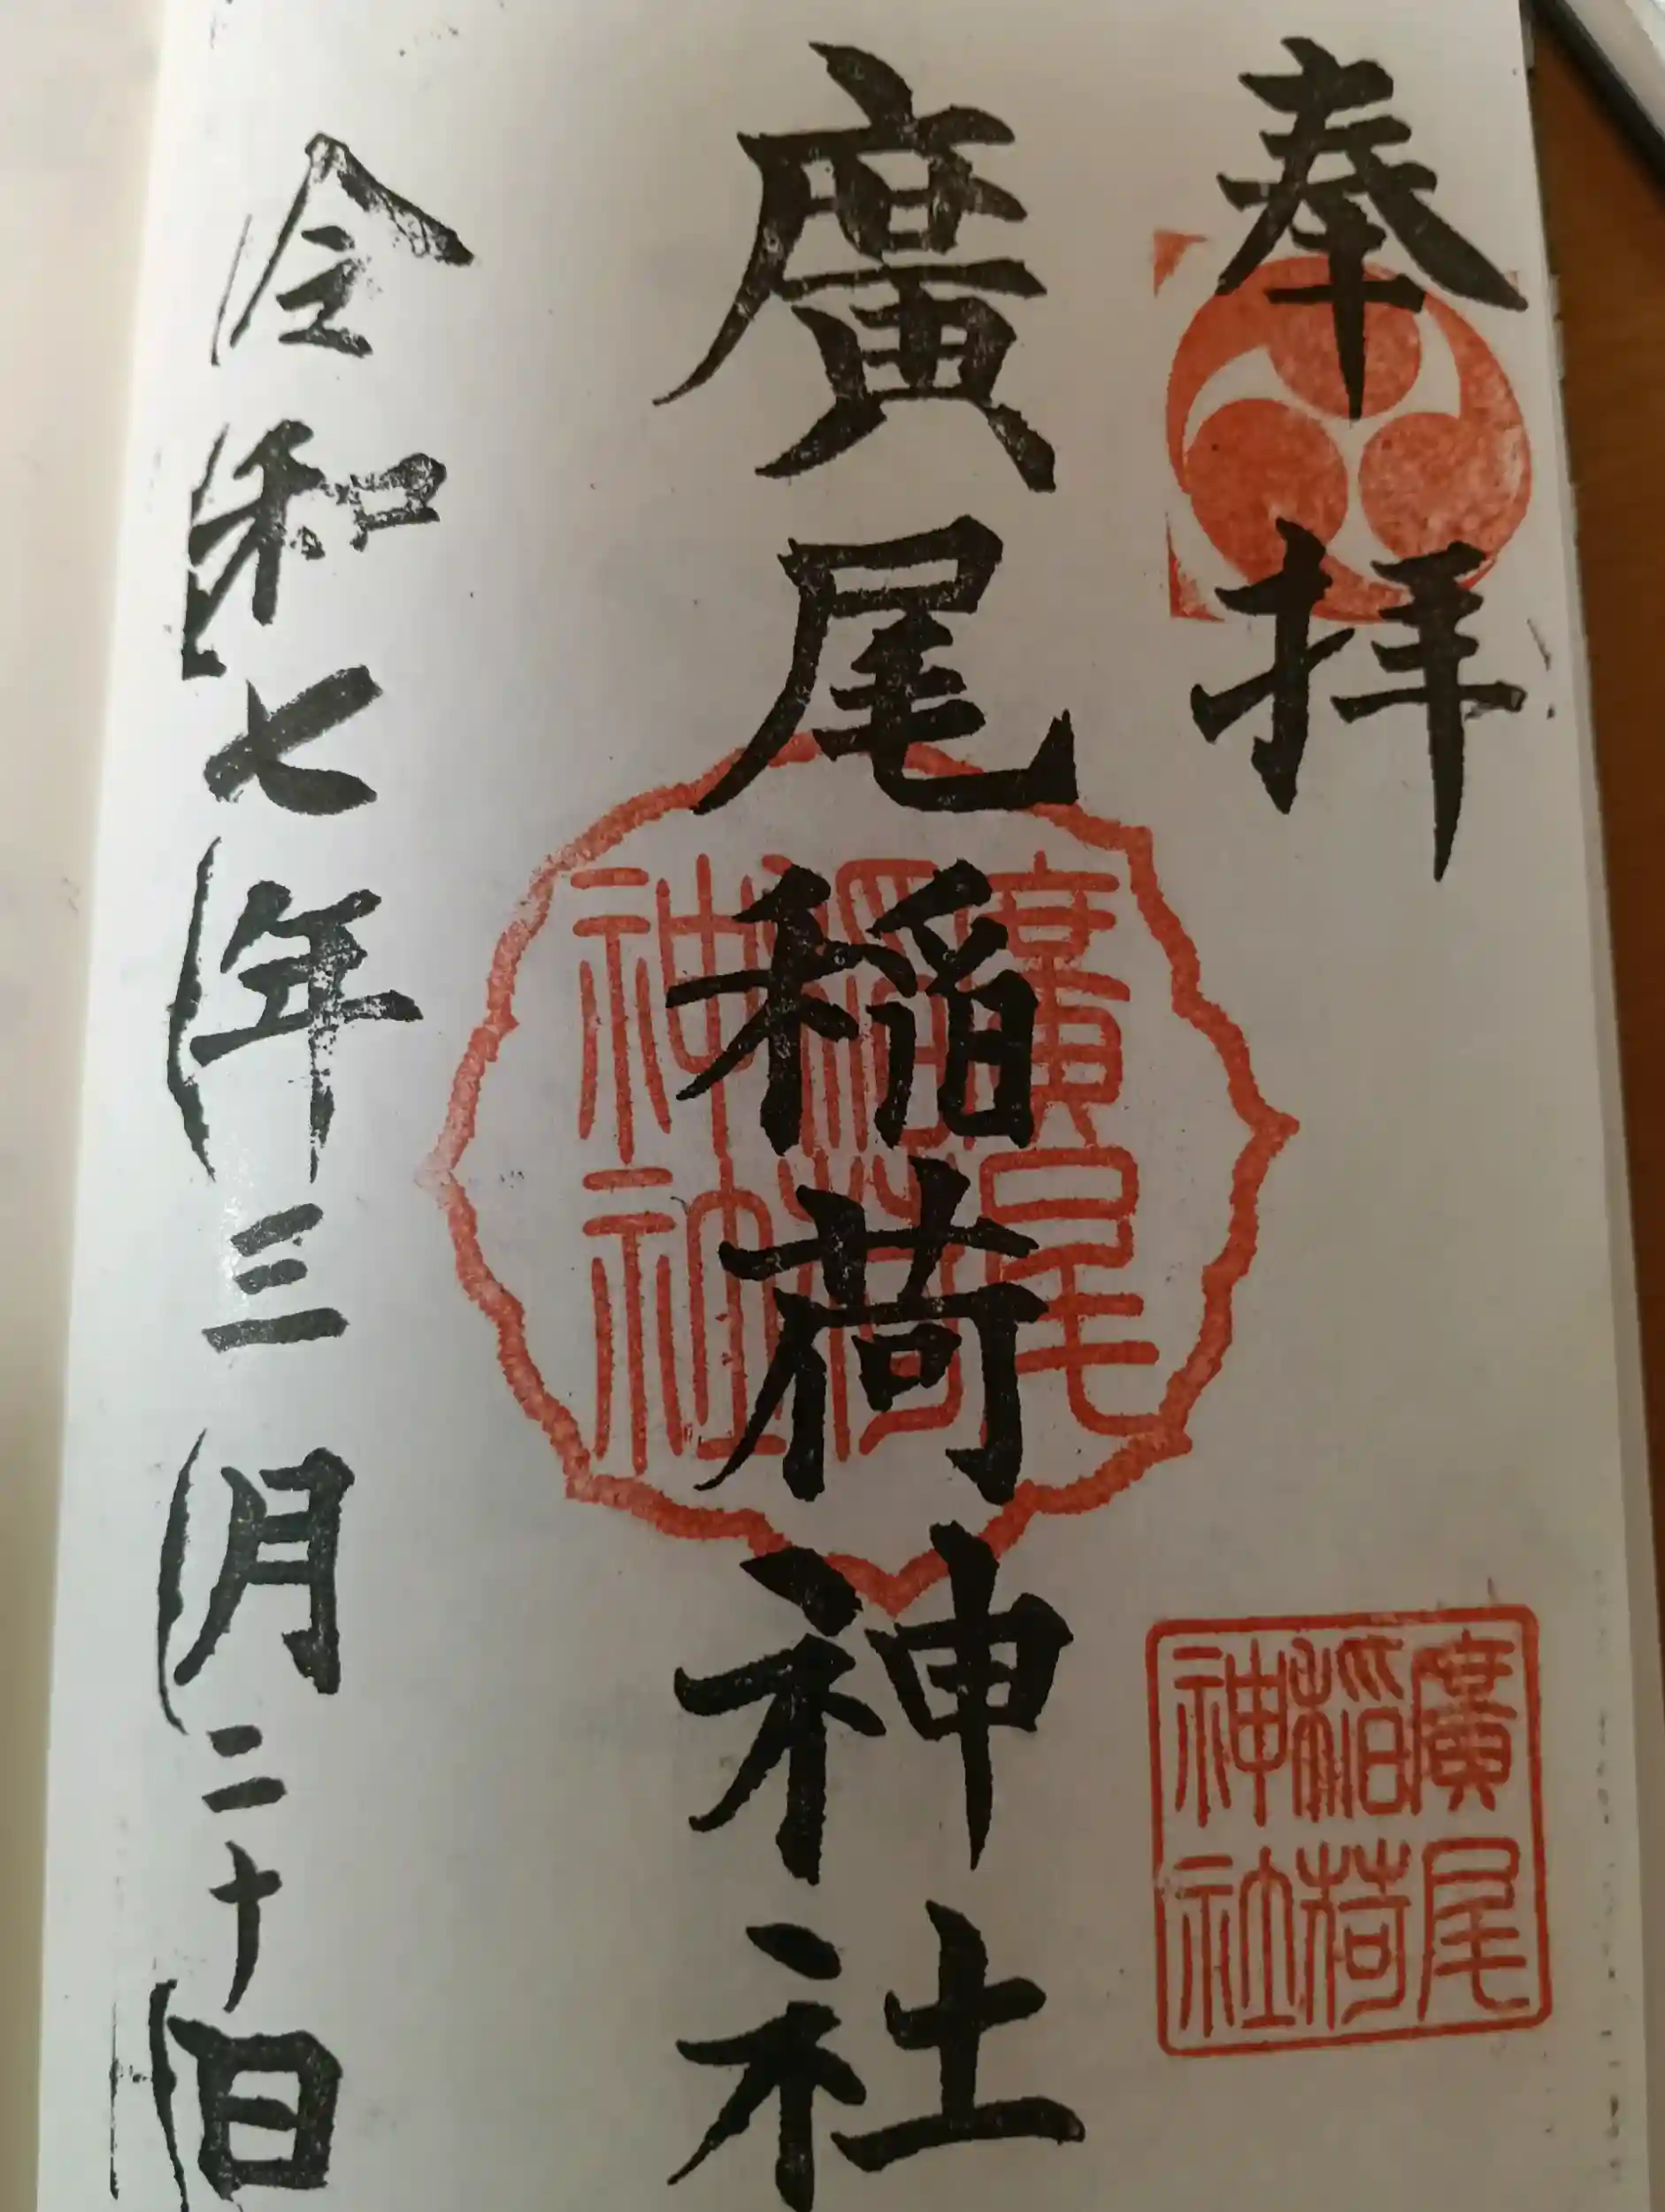 奉拝
廣尾稲荷神社
廣尾
稲荷
神社
廣尾
稲荷
神社
令和七年三月二十日